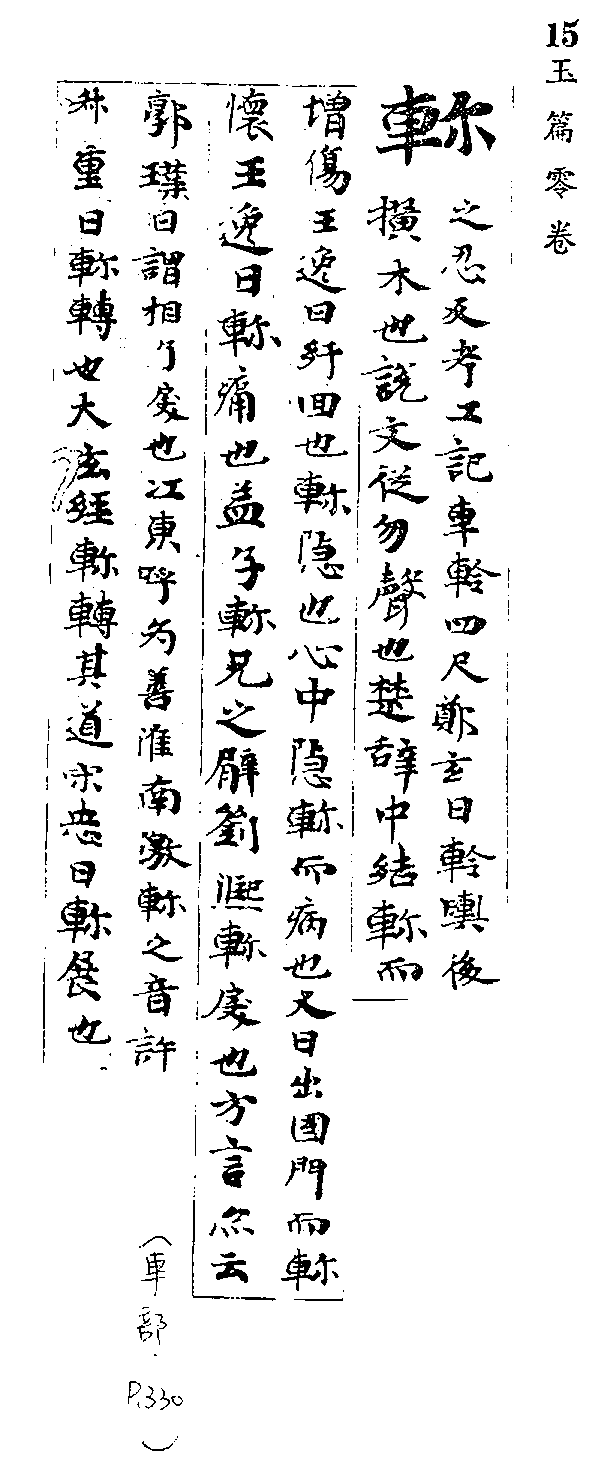 15玉篇零卷
軫
之忍反考工記車軨四尺鄭玄曰軨輿後
撗木也說文從勿聲也楚辤中結軫而
增傷王逸曰紆回也軫隱也心中隱軫而病也又曰出國門而軫
懷王逸曰軫痛也孟子軫兄之臂劉熙軫戾也方言亦云
郭璞曰謂相了戾也江東呼為善淮南激軫之音許
重曰軫轉也大玄經軫轉其道宋忠曰軫展也
(車部.
P.330
)